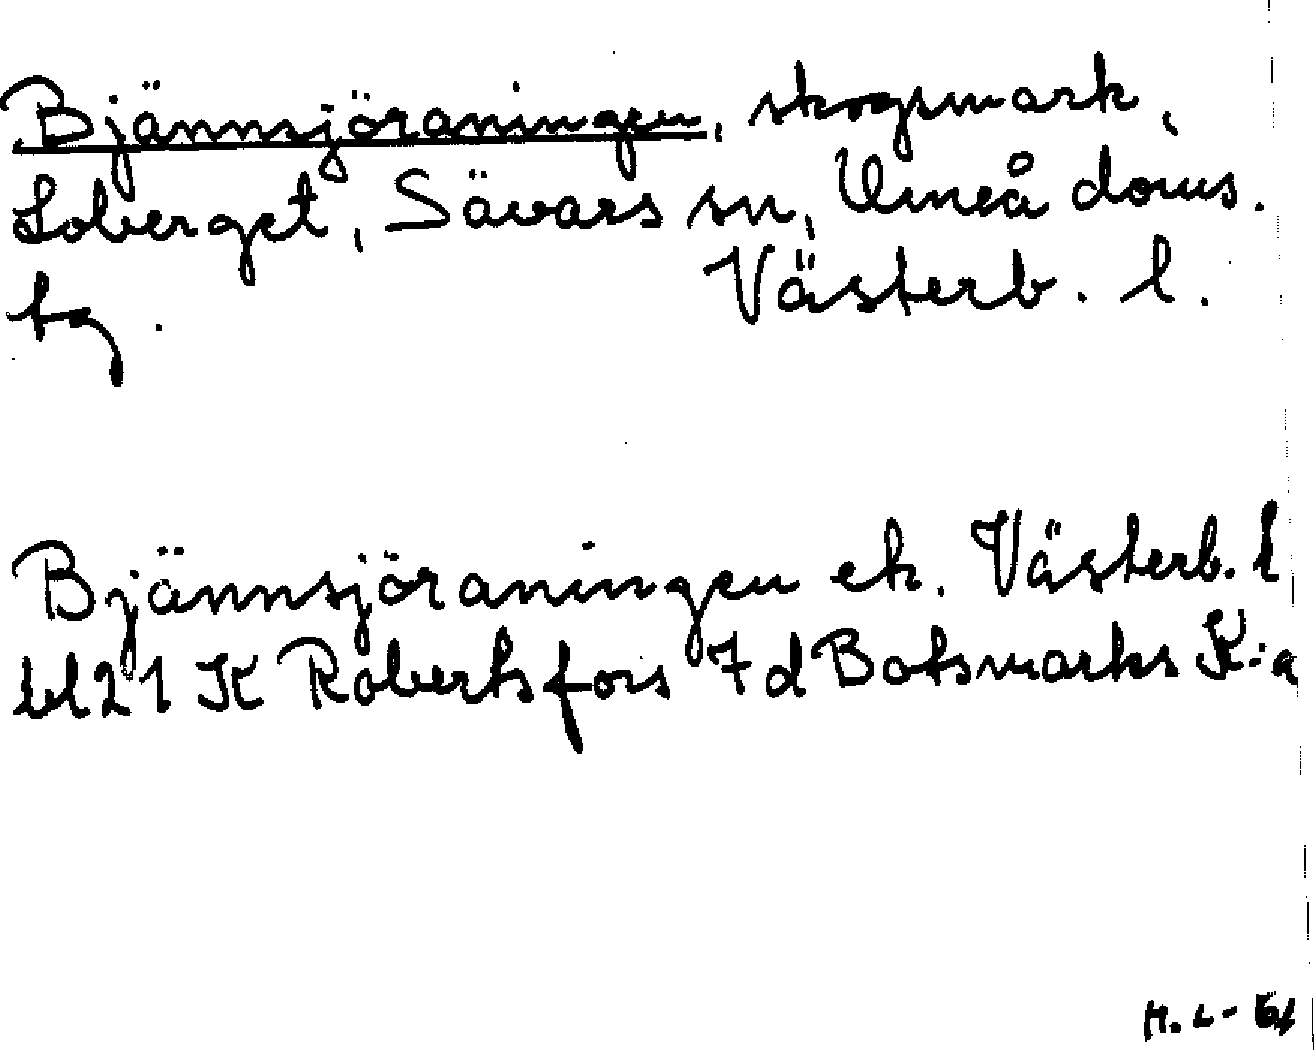 Bjännsjöraningen, skogsmark,
Loberget, Sävars sn, Umeå doms.
tg. Västerb. l.
Bjännsjöraningen ek. Västerb. l
bl 21 K Robertsfors 7d Botsmarks K:a
H. L-